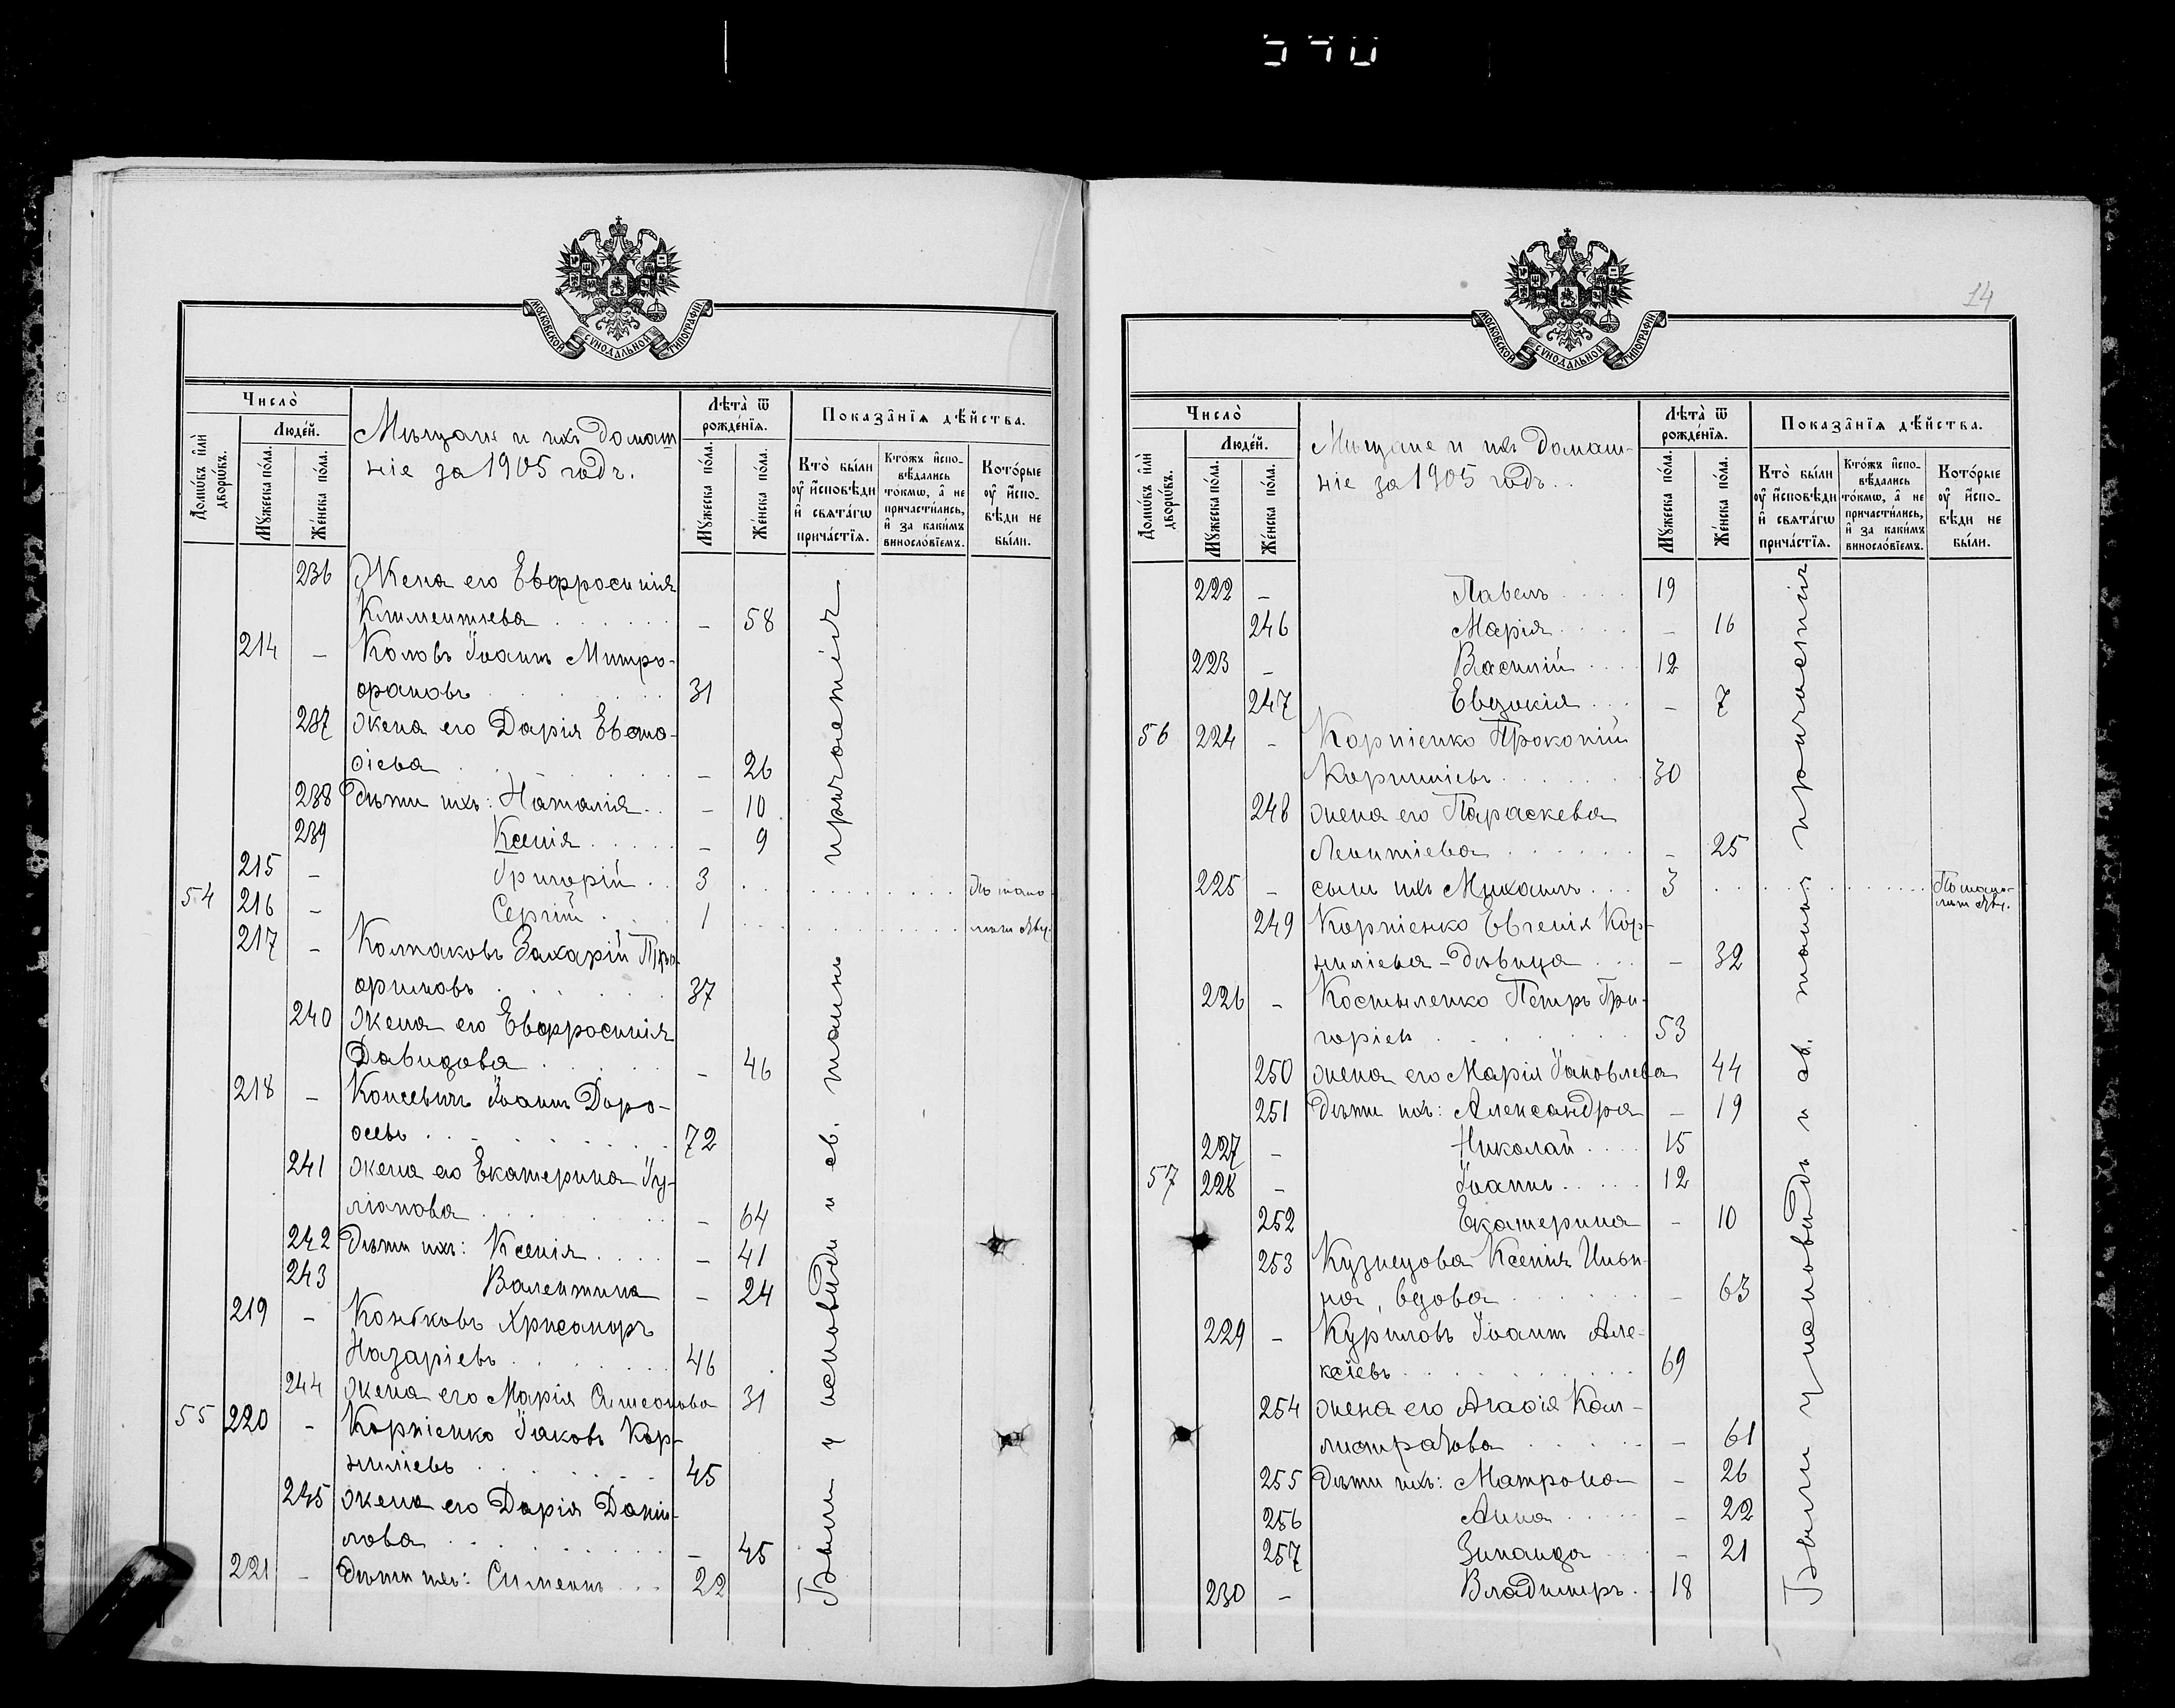 МОСКОВСКОЙ СУНОДАЛЬНОЙ ТИПОГРАФІИ
Число̀
Домѡ́въ и҆лѝ дворѡ́въ.
Люде́й.
Мꙋ́жеска по́ла.
Же́нска по́ла.
Мѣщане и ихъ домаш
ніе за 1905 годъ.
Лѣта̀ ѿ рожде́нїѧ.
Мꙋ́жеска по́ла.
Же́нска по́ла.
Показа̑нїѧ дѣ́йства.
Кто̀ бы́ли оу҆ и҆сповѣди и҆ свѧта́гѡ прича́стїѧ.
Кто́жъ и҆спо-вѣдались то́кмѡ, а҆ не причасти́лись, и҆ за каки́мъ винослові́емъ.
Кото́рые оу҆ и҆спо-вѣди не бы́ли.
236 Жена его Евфросинія
Климентьева . . . . . . – 58
214 – Коловъ Іоаннъ Митро-
фановъ . . . . . 31
237 жена его Дарія Евста-
фіева . . . . . – 26
238 Дѣти ихъ: Наталія . . – 10
239 Ксенія . . . . . – 9
215 – Григорій . . 3 . . . . . . . По мало-
54 216 – Сергій . . . 1 . . . . . . . лѣт.
217 – Колпаковъ Захарій
фимовъ . . . . . . 37
240 жена его Евфросинія
Давидова . . . . . – 46
218 – Концевичъ Іоаннъ Доро-
феевъ . . . . . . . 72
241 жена его Екатерина Іу-
ліанова . . . . . . – 64
242 Дѣти ихъ: Ксенія . . . . – 41
243 Валентина – 24
219 – Коньковъ Хрисанфъ
Назаріевъ . . . . . . 46
244 жена его Марія Симеонова 31
55 220 – Корніенко Іаковъ Кор-
ниліевъ . . . . . . . 45
245 жена его Дарія Дани-
лова . . . . . . . . – 45
221 – Дѣти ихъ: Симеонъ . . . 22
Были у исповѣди и св. таинъ причастія
14
МОСКОВСКОЙ СУНОДАЛЬНОЙ ТИПОГРАФІИ
Число̀
Домѡ́въ и҆лѝ дворѡ́въ.
Люде́й.
Мꙋ́жеска по́ла.
Же́нска по́ла.
Мѣщане и ихъ домаш-
ніе за 1905 годъ. .
Лѣта̀ ѿ рожде́нїѧ.
Мꙋ́жеска по́ла.
Же́нска по́ла.
Показа̑нїѧ дѣ́йства.
Кто̀ бы́ли оу҆ и҆сповѣди и҆ свѧта́гѡ прича́стїѧ.
Кто́жъ и҆спо-вѣдались то́кмѡ, а҆ не причасти́лись, и҆ за каки́мъ винослові́емъ.
Кото́рые оу҆ и҆спо-вѣди не бы́ли.
222 – Павелъ . . . . 19
246 Марія . . . . – 16
223 – Василій . . . . 12
247 Евдокія . . . – 7
56 224 – Корніенко Прокопій
Корниліевъ . . . . . . . 30
248 жена его Параскева
Леонтіева . . . . . . – 25
225 – сынъ ихъ Михаилъ . . . 3 . . . . . . . По мало-
лѣт.
249 Корніенко Евгенія Кор-
ниліева – дѣвица . . . – 32
226 – Костыленко Петръ Гри-
горіевъ . . . . . . . 53
250 жена его Марія Іаковлева 44
251 Дѣти ихъ: Александра – 19
227 – Николай . . . . 15
57 228 – Іоаннъ . . . . . 12
252 Екатерина – 10
253 Кузнецова Ксенія Ильи-
на, вдова . . . . . . – 63
229 – Куриловъ Іоаннъ Але-
ксіевъ . . . . . . . . . 69
254 жена его Агафія Кал-
листратова . . . . . – 61
255 Дѣти ихъ: Матрона – 26
256 Анна . . . . . – 22
257 Зинаида . . . – 21
230 – Владимиръ . . 18
Были у исповѣди и св. таинъ причастія